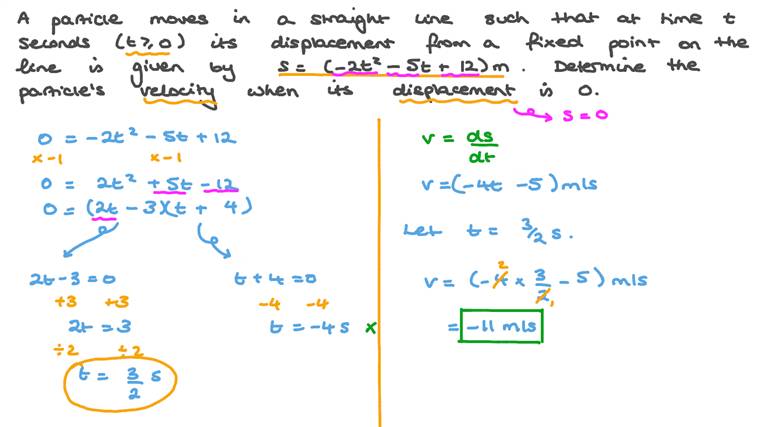 A particle moves in a straight line such that at time t
seconds (t ≥ 0) its displacement from a fixed point on the
line is given by s = (-2t² - 5t + 12) m. Determine the
particle's velocity when its displacement is 0.
s = 0
0 = -2t² - 5t + 12
x -1 x -1
0 = 2t² + 5t - 12
0 = (2t - 3)(t + 4)
2t - 3 = 0
+3 +3
2t = 3
÷2 ÷2
t = 3/2 s
t + 4 = 0
-4 -4
t = -4 s x
v = ds/dt
v = (-4t - 5) m/s
Let t = 3/2 s.
v = (-4 2 x 3/2 1 - 5) m/s
= -11 m/s